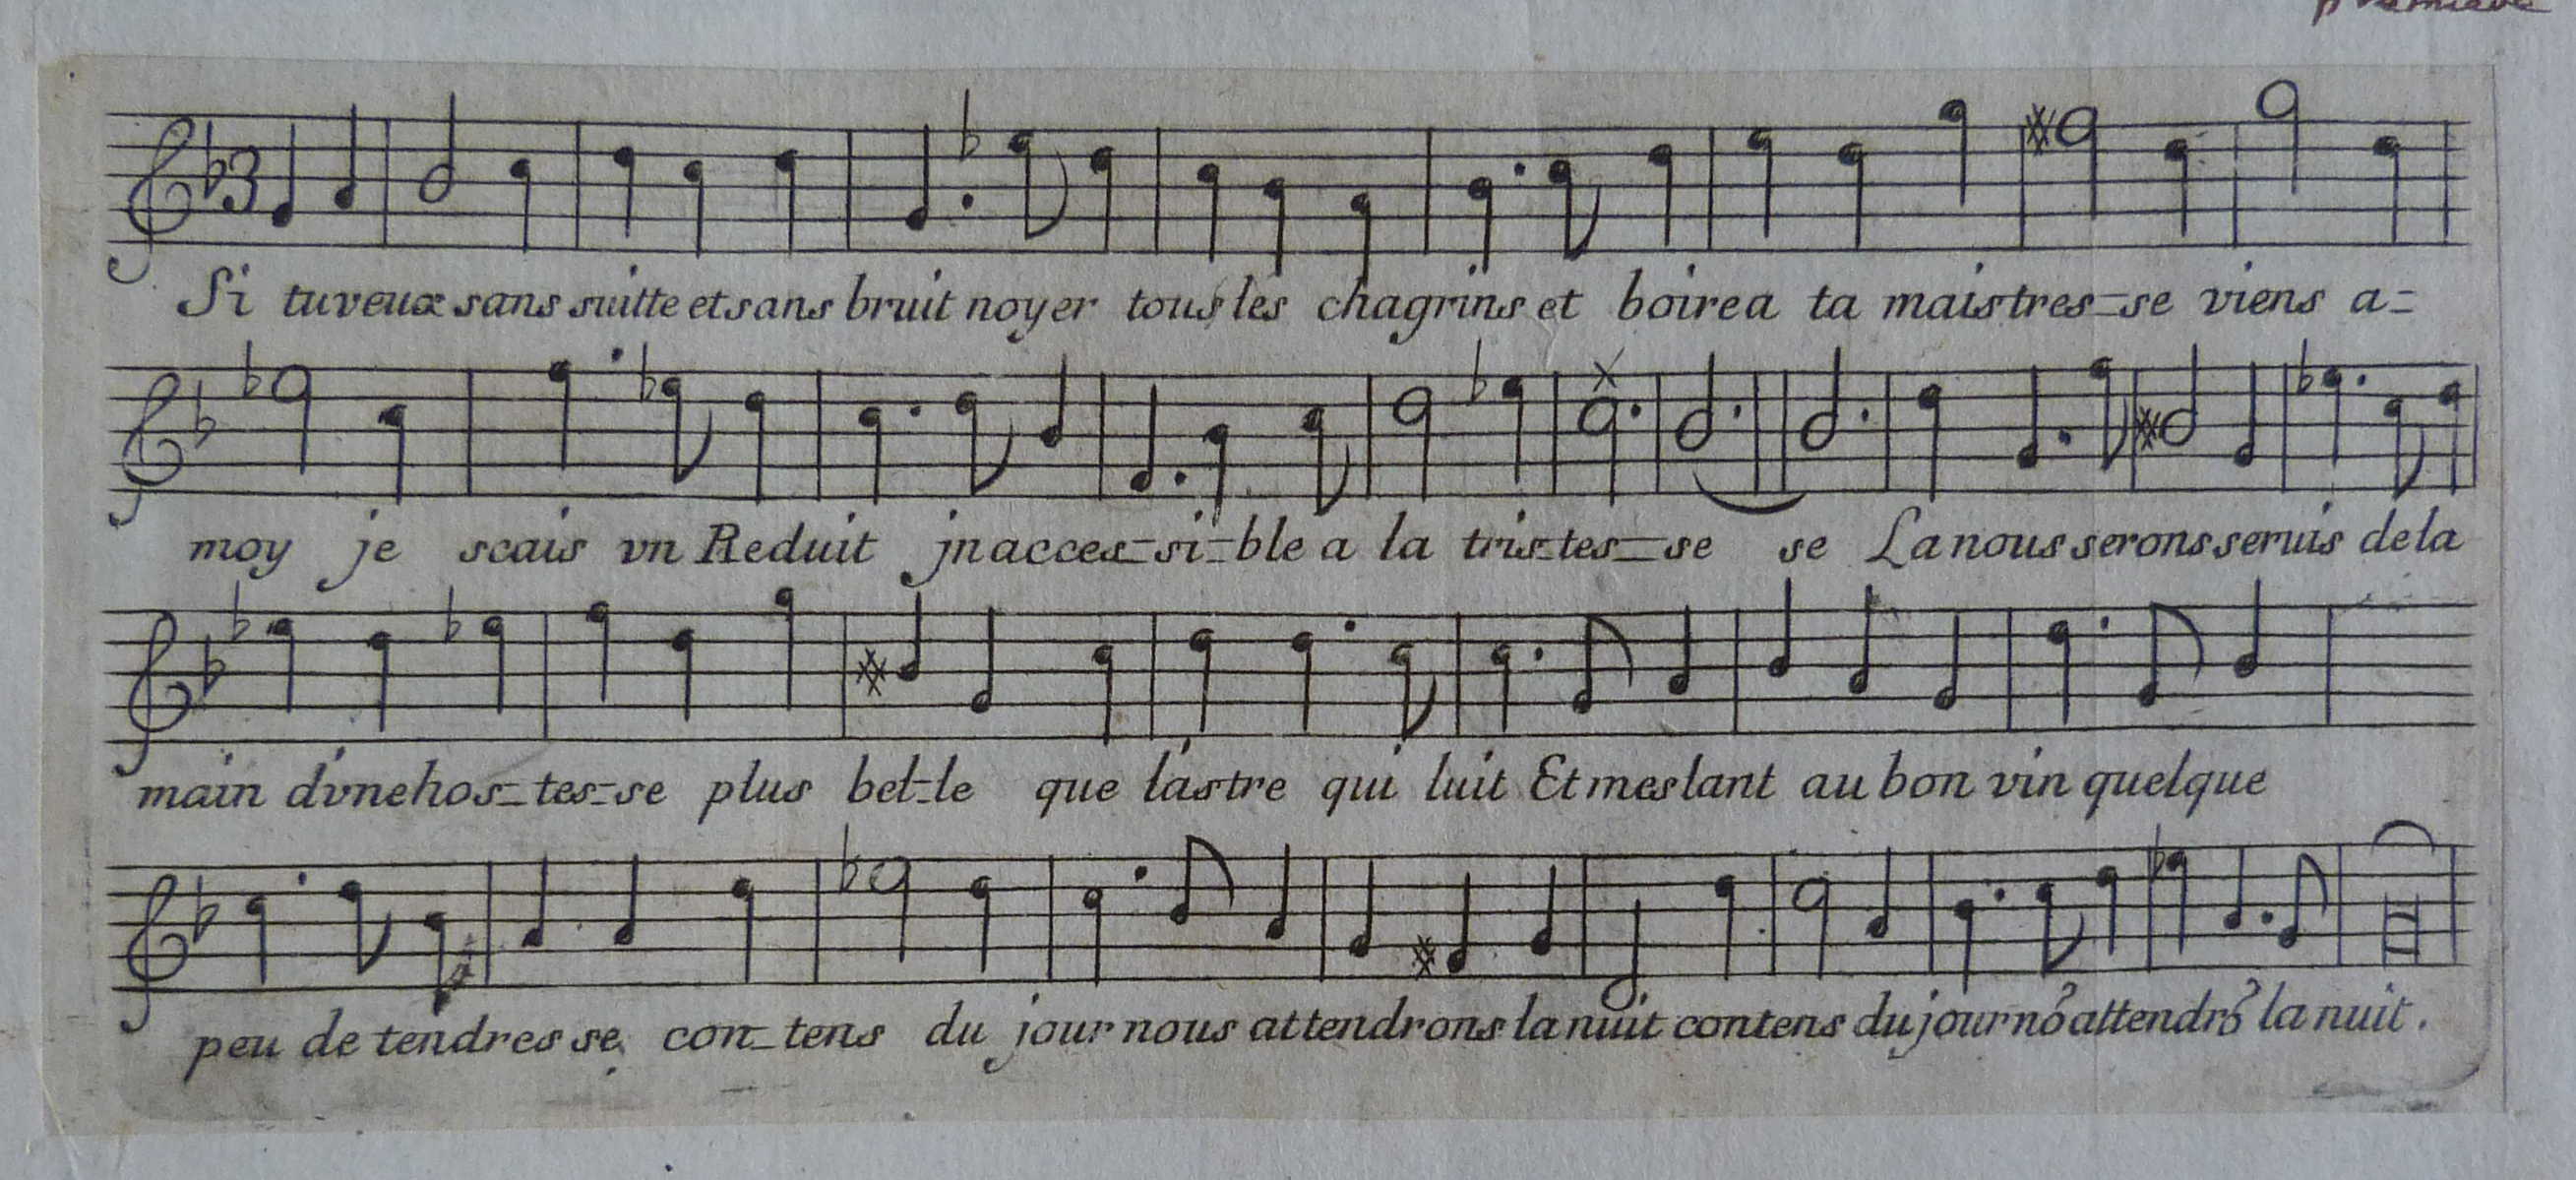 Si tu veux sans suitte et sans bruit noyer tous les chagrins et boire a ta maistres-se viens a-
moy je scais vn Reduit jnacces-si-ble a la tris-tes-se se La nous serons seruis de la
main d'vne hos-tes-se plus bel-le que l'astre qui luit Et meslant au bon vin quelque
peu de tendresse con-tens du jour nous attendrons la nuit contens du jour nõ attendrõ la nuit.